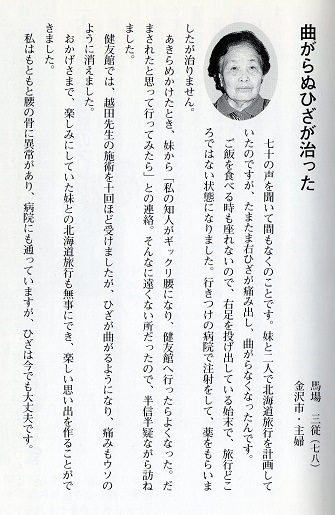 曲がらぬひざが治った
馬場　三従（七八）
金沢市・主婦
七十の声を聞いて間もなくのことです。妹と二人で北海道旅行を計画して
いたのですが、たまたま右ひざが痛み出し、曲がらなくなったんです。
ご飯を食べる時も座れないので、右足を投げ出している始末で、旅行どこ
ろではない状態になりました。行きつけの病院で注射をして、薬をもらいま
したが治りません。
あきらめかけたとき、妹から「私の知人がギックリ腰になり、健友館へ行ったらよくなった。だ
まされたと思って行ってみたら」との連絡。そんなに遠くない所だったので、半信半疑ながら訪ね
ました。
健友館では、越田先生の施術を十回ほど受けましたが、ひざが曲がるようになり、痛みもウソの
ように消えました。
おかげさまで、楽しみにしていた妹との北海道旅行も無事にでき、楽しい思い出を作ることがで
きました。
私はもともと腰の骨に異常があり、病院にも通っていますが、ひざは今でも大丈夫です。